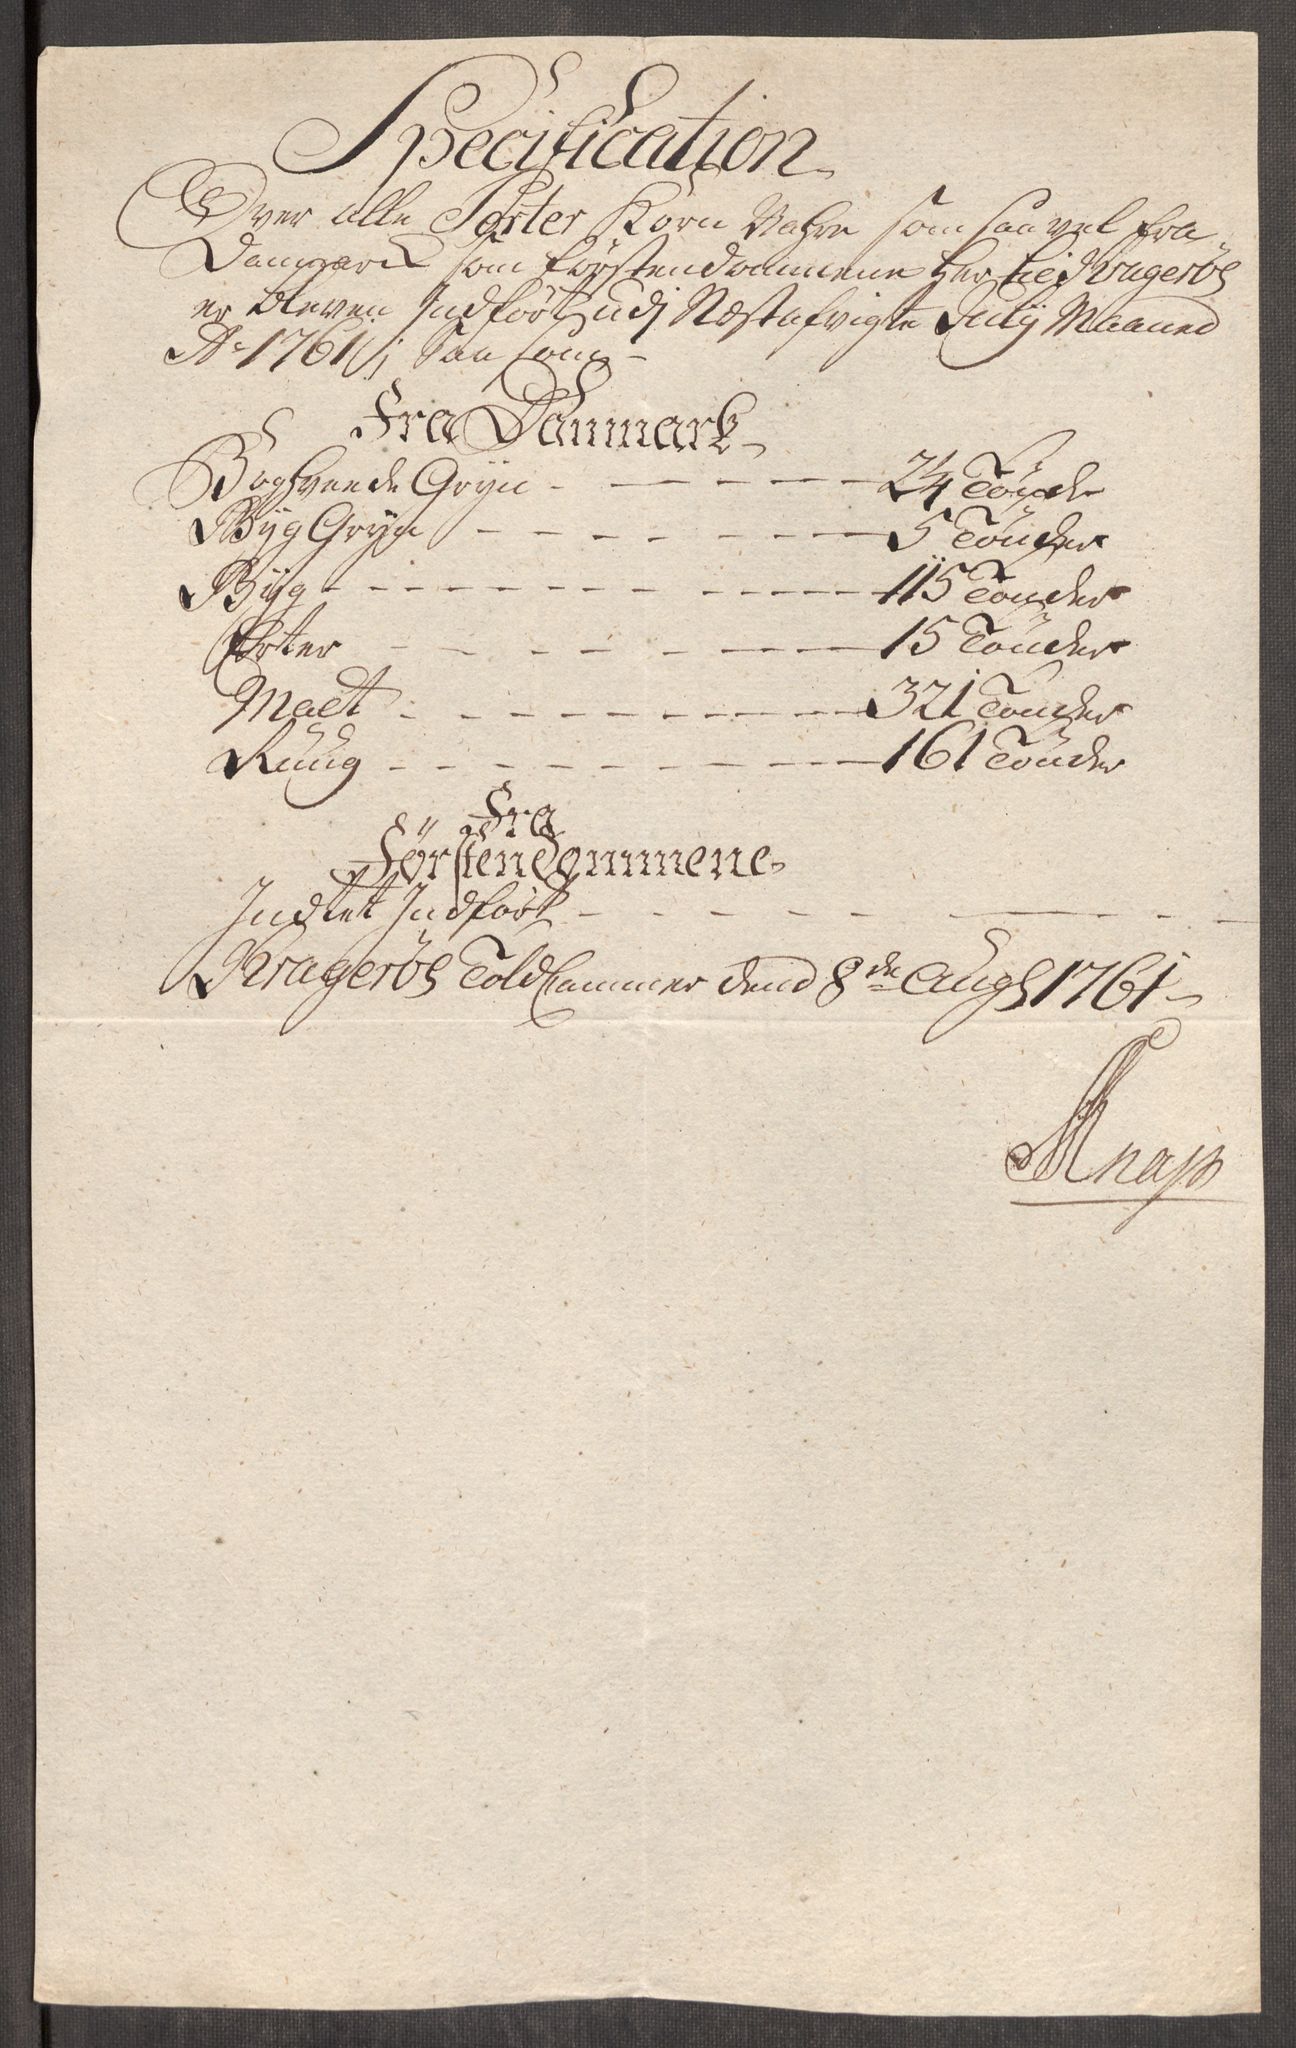 Specification
Over alle Sorter Korn Vahre som saavel fra
Danmarck som förstendommene her til Krageröe
er bleven Indfört udj Næstafvigte Julij Maaned
Ao 1761 Saasom
Fra Danmark
Boghveede Gryn - - - - - 24 Tönder
Byg Gryn - - - - - - 5 Tönder
Byg - - - - - - - - - - 115 Tönder
Erter - - - - - - - 15 Tönder
Malt - - - - - - - - 321 Tönder
Ruug - - - - - - - - 161 Tönder
Fra
Förstendommene
Indtet Indfört - - - - - - - -
Krageröe Told Cammer dend 8de Aug 1761
Knap